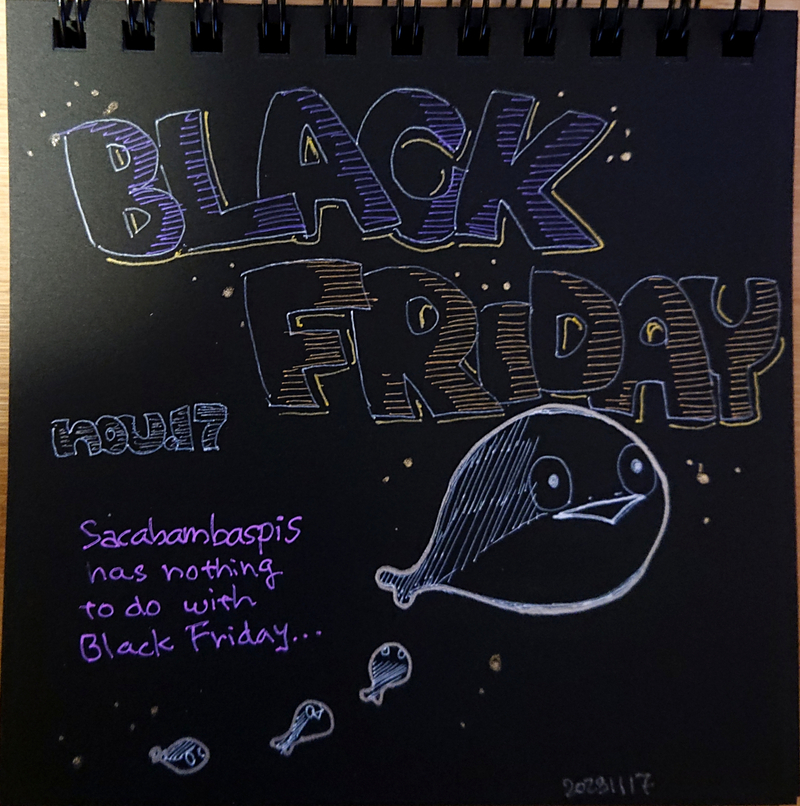 BLACK
FRiDAY
nov.17
Sacabambaspis
has nothing
to do with
Black Friday...
20231117